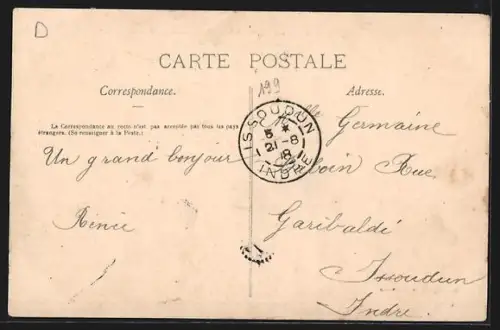 D
CARTE POSTALE
Correspondance.
Adresse.
La Correspondance au recto n'est pas acceptée par tous les pays
étrangers. (Se renseigner à la Poste.)
199
ISSOUDUN
5 *
21-8
INDRE
Un grand bonjour
Renée
Mlle Germaine
Rue
Garibaldi
Issoudun
Indre